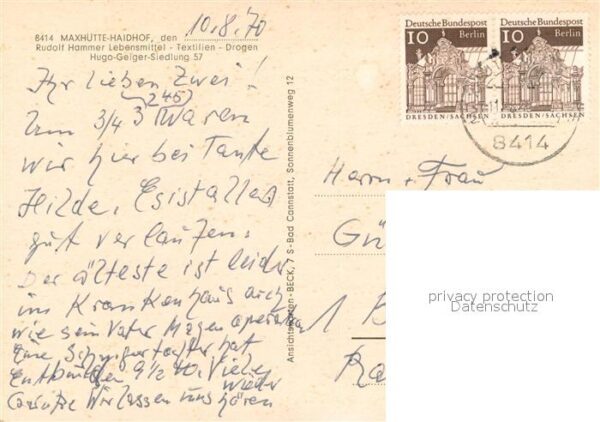 8414 MAXHÜTTE-HAIDHOF, den 10.8.70
Rudolf Hammer Lebensmittel - Textilien - Drogen
Hugo-Geiger-Siedlung 57
Ihr lieben Zwei!
(245)
Um 3/4 3 waren
wir hier bei Tante
Hilde, Es ist alles
gut verlaufen.
Der älteste ist leider
im Krankenhaus auch
wie sein Vater Magenoperation
Eine Schwigertochter hat
Entbunden 9 1/2 Viele
Grüße Wir lassen uns hören
wieder
Ansichtskarten-BECK, 7 S-Bad Cannstatt, Sonnenblumenweg 12
Deutsche Bundespost
10 Berlin
DRESDEN/SACHSEN
Deutsche Bundespost
10 Berlin
DRESDEN/SACHSEN
8414
Herrn + Frau
Gü
1 B
privacy protection
Datenschutz
Ra